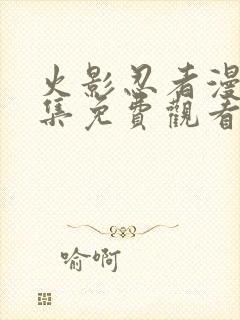 火影忍者漫
集免費觀看
喻啊